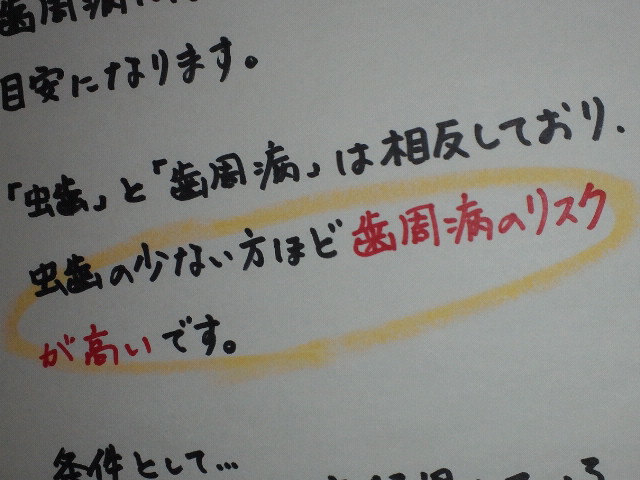 歯周病
目安になります。
「虫歯」と「歯周病」は相反しており、
虫歯の少ない方ほど歯周病のリスク
が高いです。
条件として…